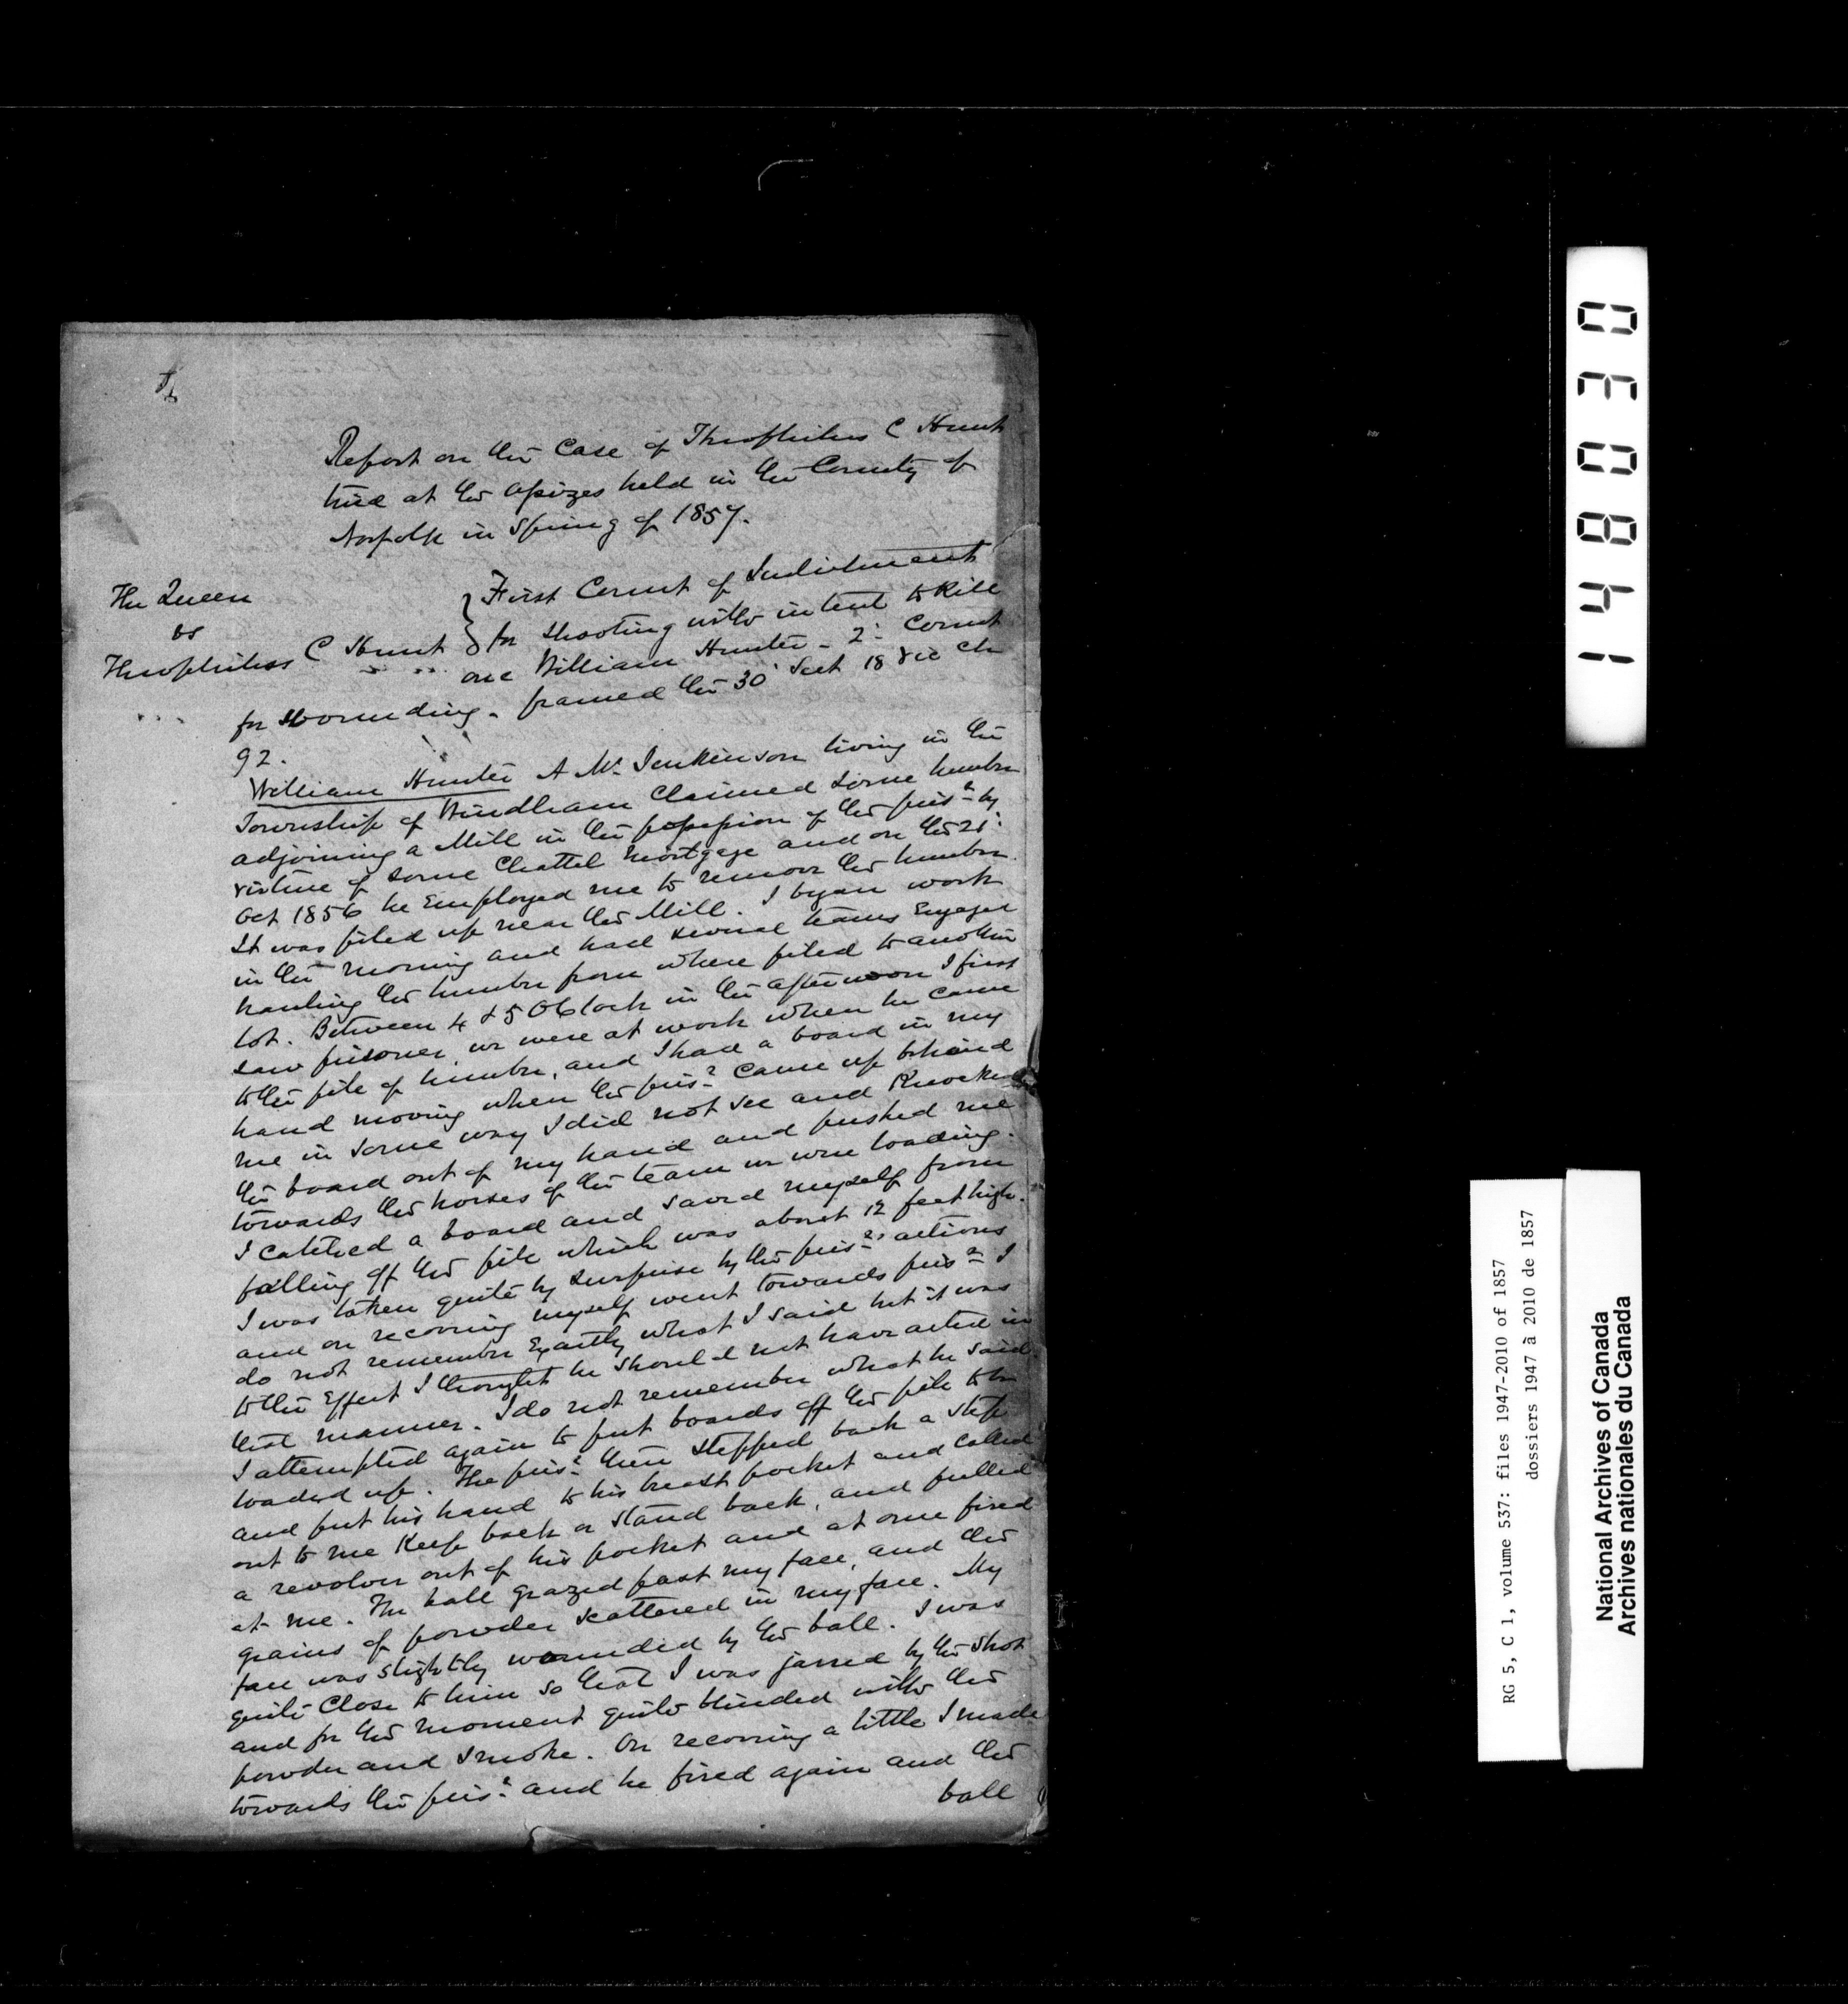 Report on the Case of Theophilus C Hunt
tried at the Assizes held in the County of
Norfolk in Spring of 1857.
The Queen
vs
Theophilus C Hunt
First Count of Indictment
for shooting with intent to Kill
one William Hunter - 2d Count
for wounding - framed the 30 Sect 18 Vic Ch
92.
William Hunter A Mr Jenkinson living in the
Township of Windham Claimed some lumber
adjoining a Mill in the possession of the prisr by
virtue of some Chattel mortgage and on the 21st
Oct 1856 he Employed me to remove the lumber.
It was piled up near the Mill. I began work
in the morning and had several teams Engaged
hauling the lumber from where piled to another
lot. Between 4 & 5 OClock in the afternoon I first
saw prisoner, we were at work when he came
to the pile of lumber, and I had a board in my
hand moving when the prisr Came up behind
me in some way I did not see and Knocked
the board out of my hand and pushed me
towards the horses of the team we were loading.
I catched a board and saved myself from
falling off the pile which was about 12 feet high.
I was taken quite by surprise by the prisrs actions
and on recovering myself went towards prisr I
do not remember Exactly what I said but it was
to the Effect I thought he should not have acted in
that manner. I do not remember what he said.
I attempted again to put boards off the pile to be
loaded up. The prisr then stepped back a step
and put his hand to his breast pocket and called
out to me Keep back or stand back, and pulled
a revolver out of his pocket and at once fired
at me. The ball grazed past my face, and the
grains of powder scattered in my face. My
face was slightly wounded by the ball. I was
quite Close to him so that I was jarred by the shot
and for the moment quite blinded with the
powder and smoke. On recovering a little I made
towards the prisr and he fired again and the
ball
148030
RG 5, C 1, volume 537: files 1947-2010 of 1857
dossiers 1947 à 2010 de 1857
National Archives of Canada
Archives nationales du Canada